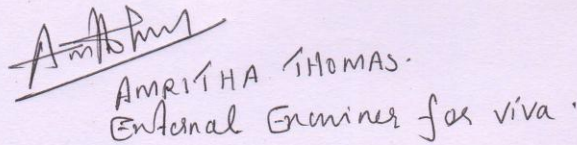 AMRITHA THOMAS.
External Examiner for viva.